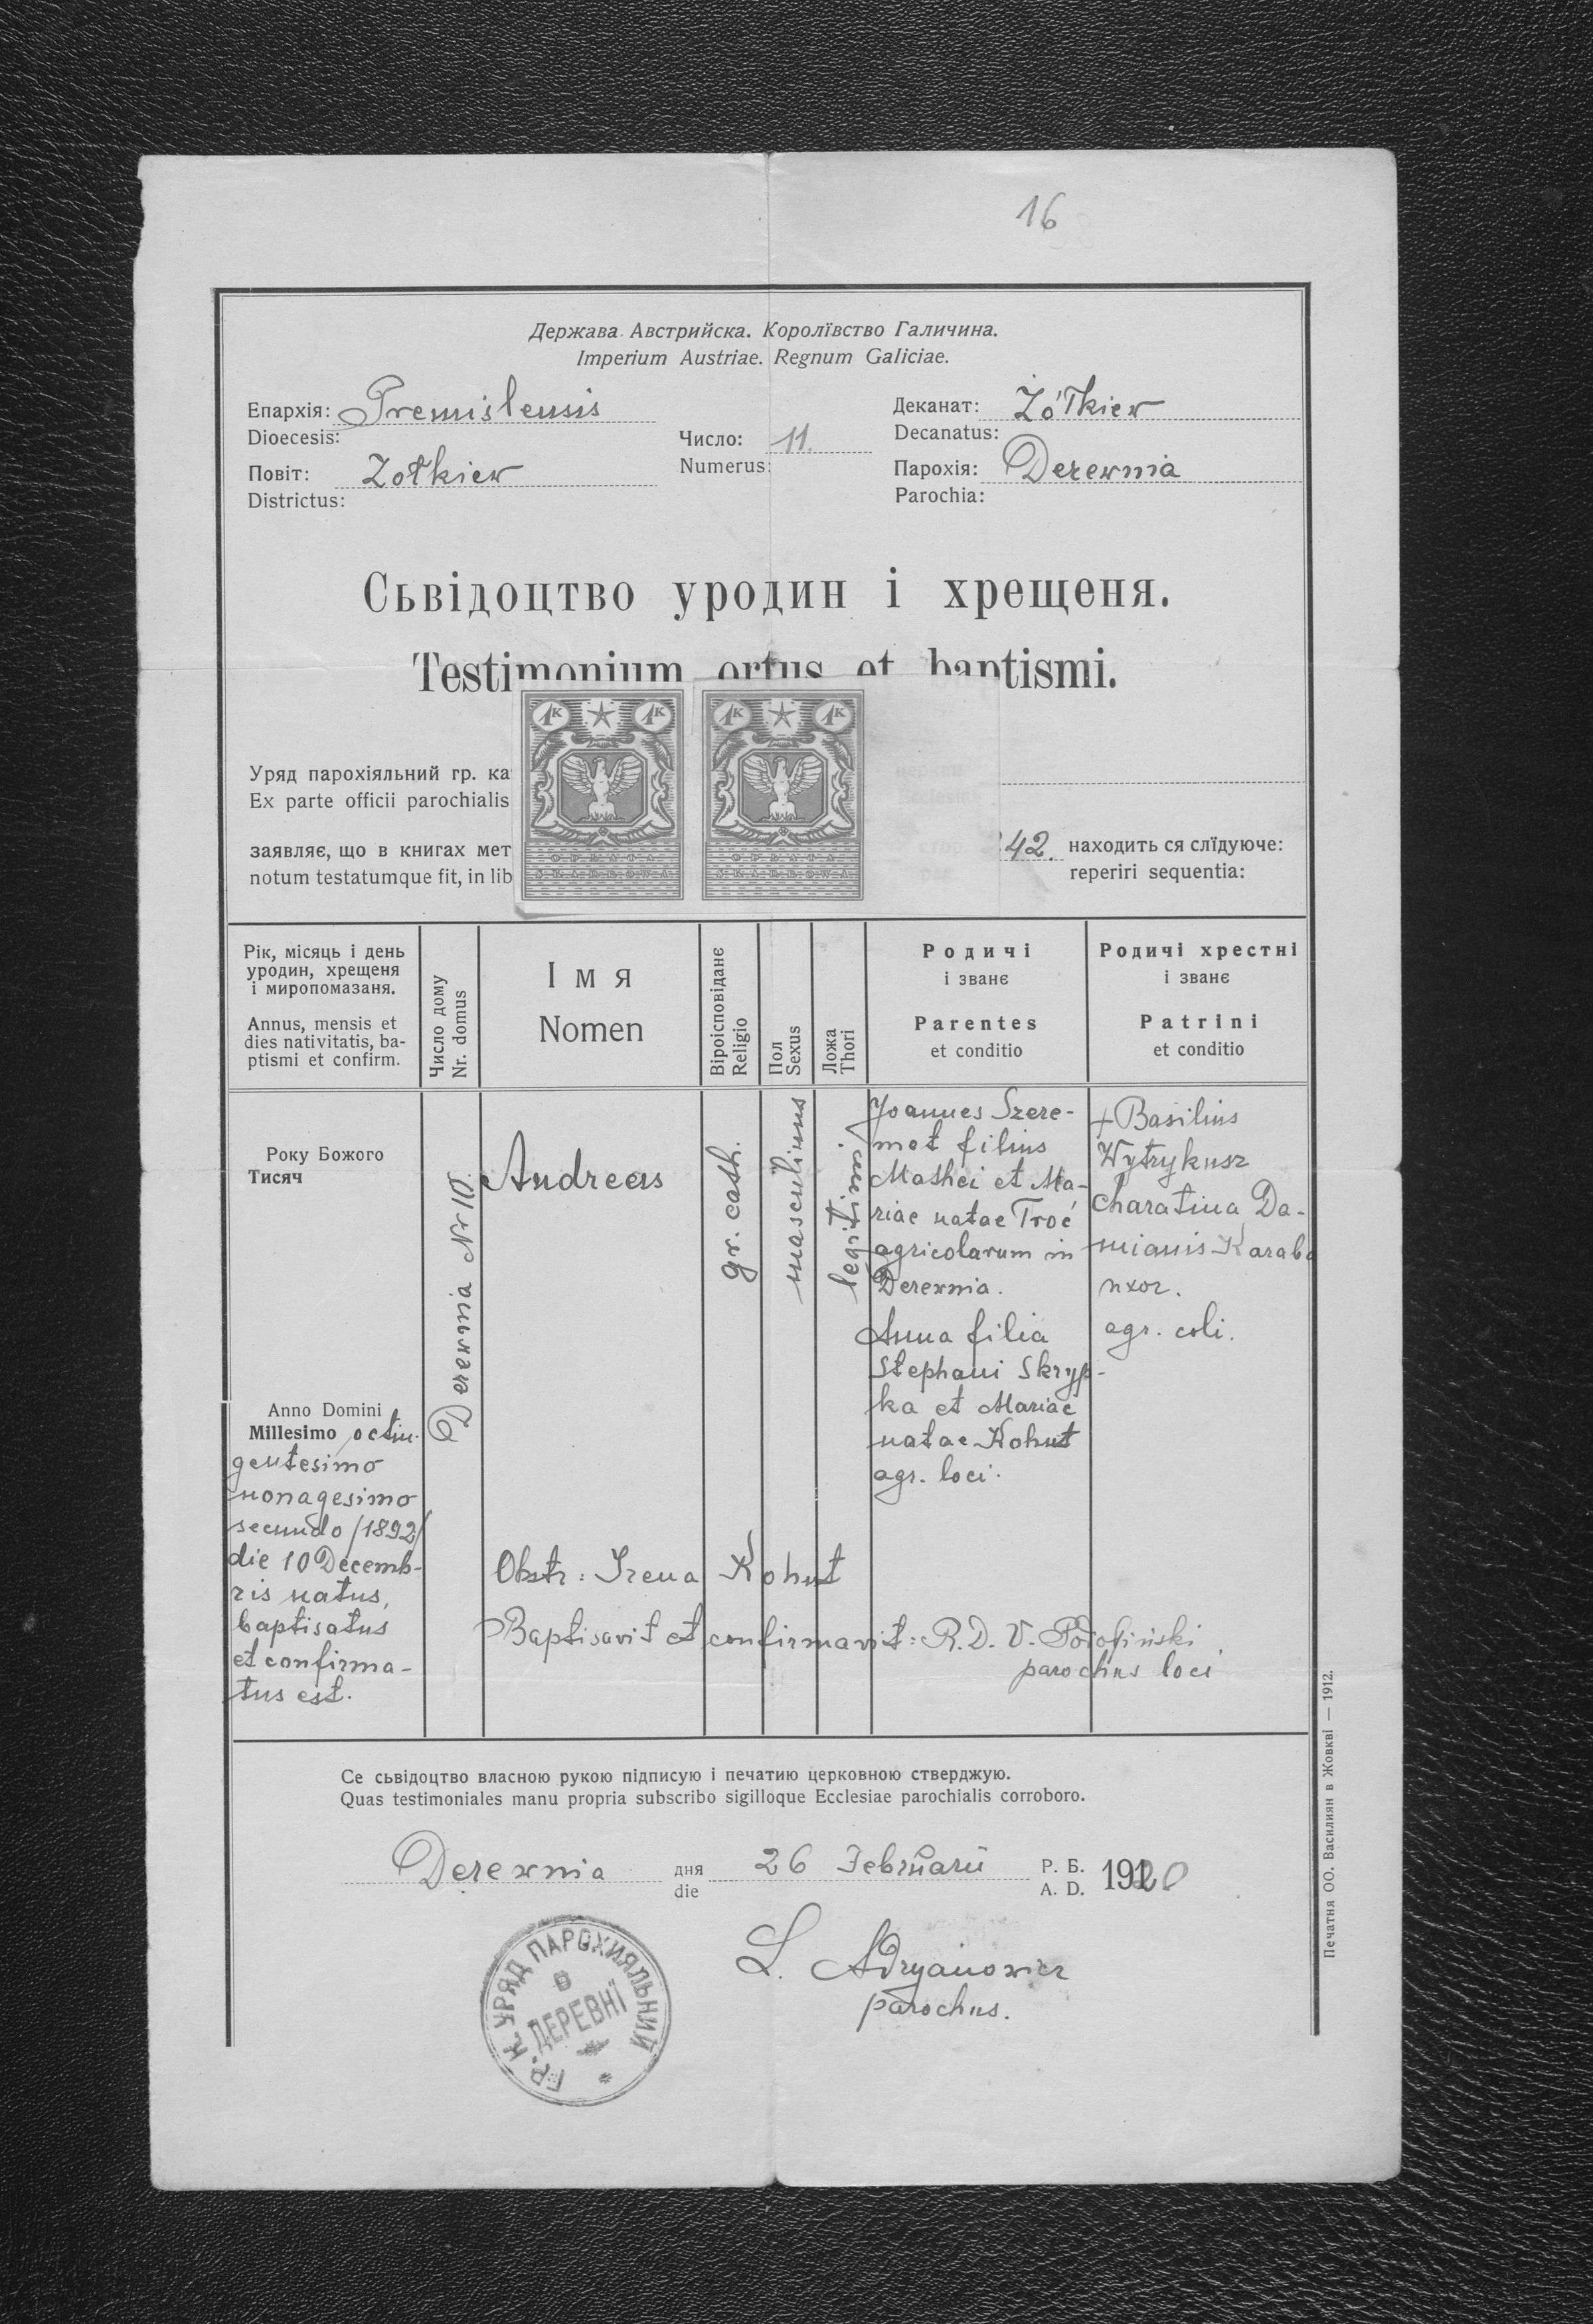 16
Держава Австрийска. Королївство Галичина.
Imperium Austriae. Regnum Galiciae.
Епархія: Premislensis
Dioecesis:
Число: 11.
Numerus:
Деканат: Żółkiew
Decanatus:
Повіт: Żołkiew
Districtus:
Парохія: Derewnia
Parochia:
Сьвідоцтво уродин і хрещеня.
Testimonium ortus et baptismi.
1K 1K 1K 1K
Уряд парохіяльний гр. ка
Ex parte officii parochialis
церкви
Ecclesi
заявляє, що в книгах мет
стор.
42. находить ся слїдуюче:
notum testatumque fit, in lib
pag.
reperiri sequentia:
OPŁATA
SKARBOWA
OPŁATA
SKARBOWA
Рік, місяць і день
уродин, хрещеня
і миропомазаня.
Annus, mensis et
dies nativitatis, ba-
ptismi et confirm.
Число дому
Nr. domus
Імя
Nomen
Віроісповіданє
Religio
Пол
Sexus
Ложа
Thori
Родичі
і званє
Parentes
et conditio
Родичі хрестні
і званє
Patrini
et conditio
Року Божого
Тисяч
Anno Domini
Millesimo octin-
gentesimo
nonagesimo
secundo /1892/
die 10 Decemb-
ris natus,
baptisatus
et confirma-
tus est.
Derewnia Nr 10.
Andreas
gr. cath.
masculinus
legitimi
Joannes Szere-
met filius
Mathei et Ma-
riae natae Troć
agricolarum in
Derewnia.
Anna filia
Stephani Skryp-
ka et Mariae
natae Kohut
agr. loci.
+Basilius
Wytrykusz
Charatina Da-
mianis Karab
uxor.
agr. coli.
Obstr: Irena Kohut
Baptisavit et confirmavit: R. D. V.
parochus loci
Се сьвідоцтво власною рукою підписую і печатию церковною стверджую.
Quas testimoniales manu propria subscribo sigilloque Ecclesiae parochialis corroboro.
Derewnia дня 26 Februarii Р. Б. 1920
die A. D.
L. Adryanowicz
parochus.
ГР. К. УРЯД ПАРОХИЯЛЬНИЙ
В
ДЕРЕВНЇ
Печатня ОО. Василиян в Жовкві — 1912.